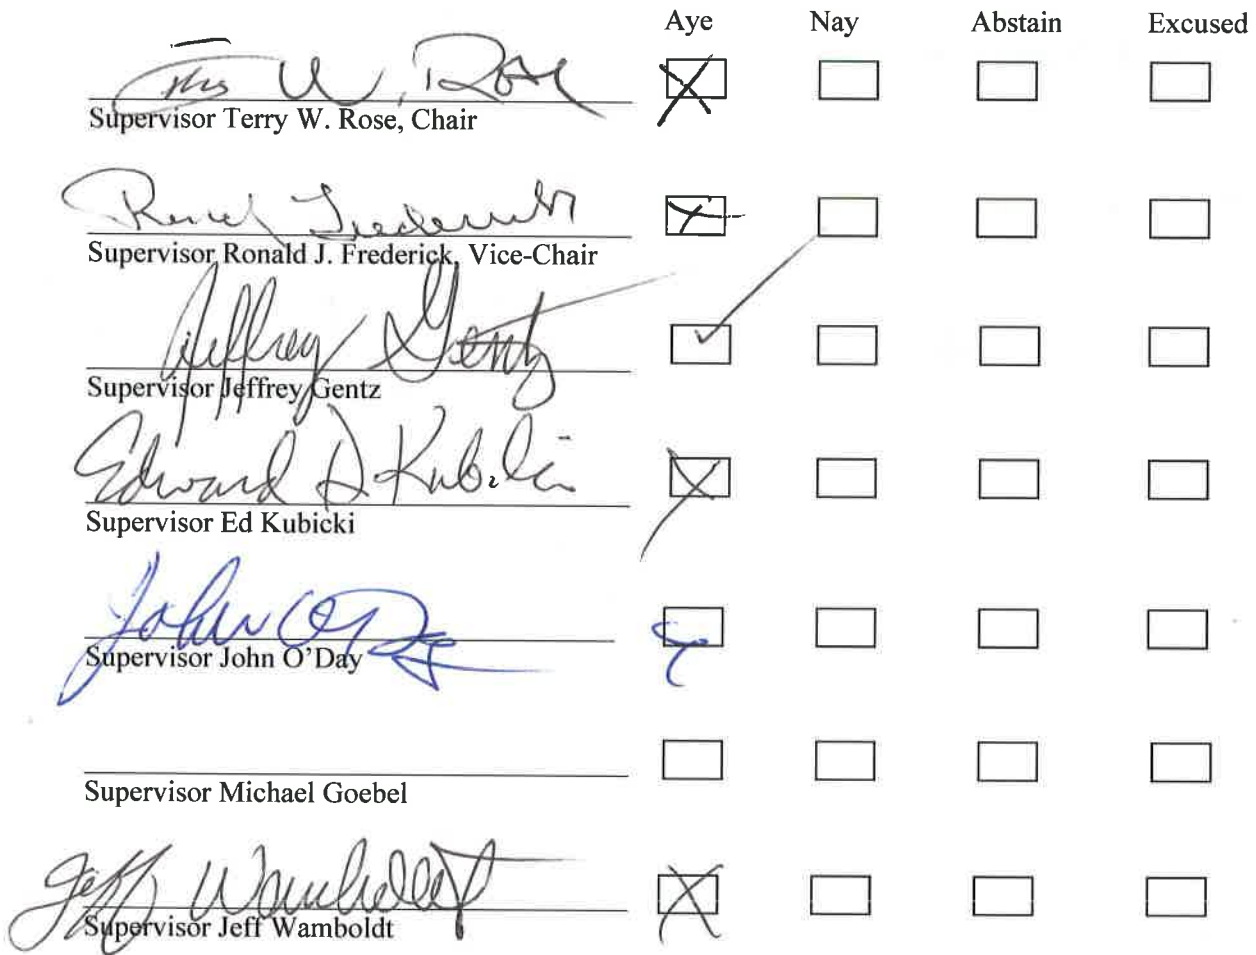 Aye Nay Abstain Excused
Terry W. Rose
Supervisor Terry W. Rose, Chair
Supervisor Ronald J. Frederick, Vice-Chair
Jeffrey Gentz
Supervisor Jeffrey Gentz
Edward D Kubicki
Supervisor Ed Kubicki
John O'Day
Supervisor John O'Day
Supervisor Michael Goebel
Jeff Wamboldt
Supervisor Jeff Wamboldt